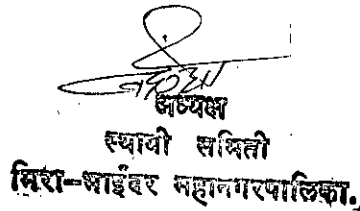 अध्यक्ष
स्थायी समिती
मिरा-भाईंदर महानगरपालिका.